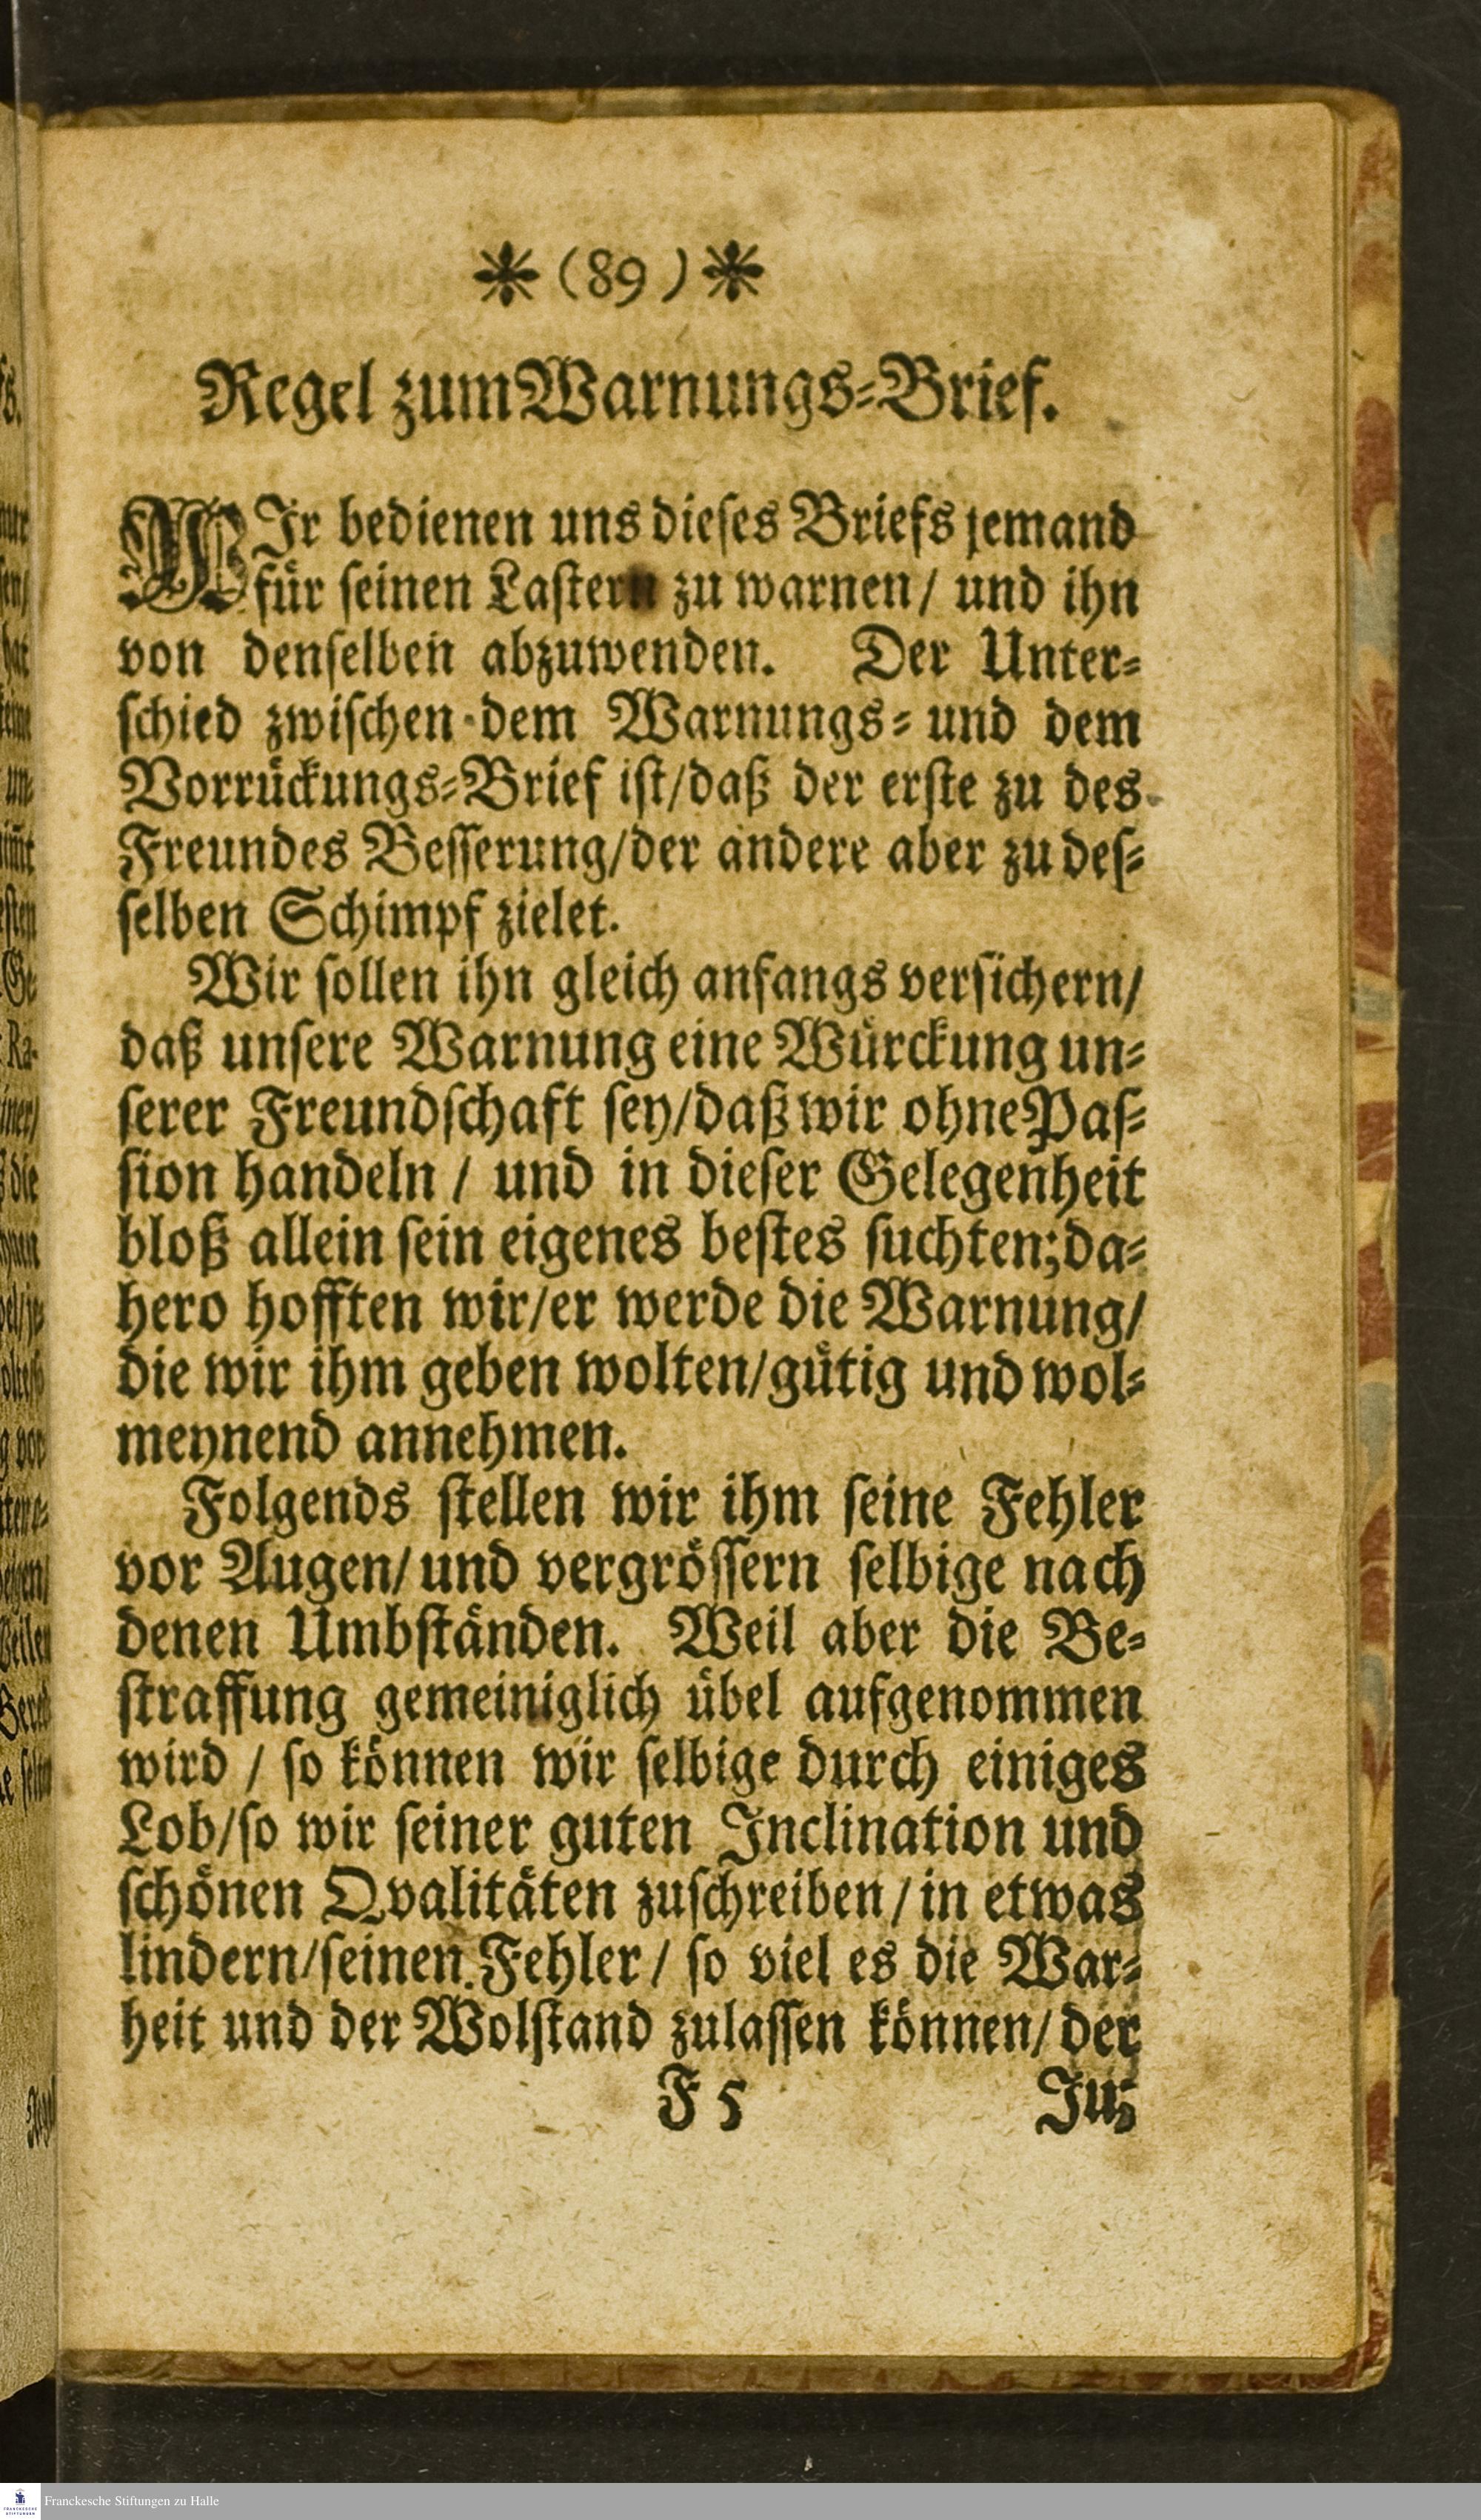 * (89) *
Regel zum Warnungs-Brief.
WIr bedienen uns dieses Briefs jemand
für seinen Lastern zu warnen/ und ihn
von denselben abzuwenden. Der Unter-
schied zwischen dem Warnungs- und dem
Vorrückungs-Brief ist/daß der erste zu des
Freundes Besserung/der andere aber zu des-
selben Schimpf zielet.
Wir sollen ihn gleich anfangs versichern/
daß unsere Warnung eine Würckung un-
serer Freundschaft sey/daß wir ohne Pas-
sion handeln / und in dieser Gelegenheit
bloß allein sein eigenes bestes suchten; da-
hero hofften wir/er werde die Warnung/
die wir ihm geben wolten/gütig und wol-
meynend annehmen.
Folgends stellen wir ihm seine Fehler
vor Augen/und vergrössern selbige nach
denen Umbständen. Weil aber die Be-
straffung gemeiniglich übel aufgenommen
wird / so können wir selbige durch einiges
Lob/so wir seiner guten Inclination und
schönen Qvalitäten zuschreiben/in etwas
lindern/seinen Fehler/ so viel es die War-
heit und der Wolstand zulassen können/der
F 5 Ju-
Franckesche Stiftungen zu Halle